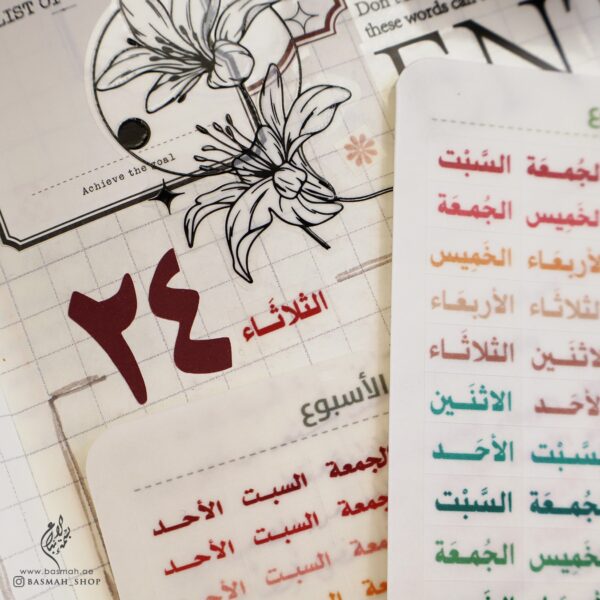 LIST OF
Don
these words can
ENT
Achieve the goal
٢٤
الثلاثَاء
الأسبوع
الجمعة السبت الأحد
الجمعة السبت الأحد
الجمعة السبت الأحد
الجُمعَة السَّبْت
الخَمِيس الجُمعَة
الأربعَاء الخَمِيس
الثلاثَاء الأربعَاء
الاثنَين الثلاثَاء
الأحَد الاثنَين
السَّبْت الأحَد
الجُمعَة السَّبْت
الخَمِيس الجُمعَة
www.basmah.ae
BASMAH_SHOP